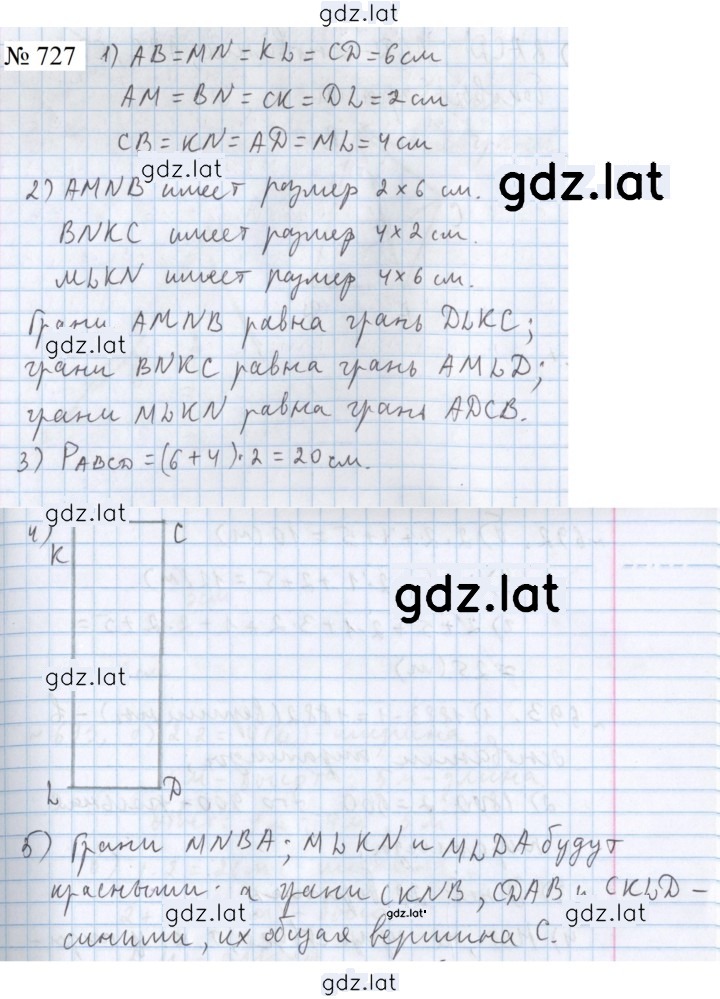 gdz.lat
№ 727 1) AB = MN = KL = CD = 6 см
AM = BN = CK = DL = 2 см
CB = KN = AD = ML = 4 см
gdz.lat
gdz.lat
2) AMNB имеет размер 2 × 6 см.
BNKC имеет размер 4 × 2 см.
MLKN имеет размер 4 × 6 см.
Грани AMNB равна грань DLKC;
gdz.lat
грани BNKC равна грань AMLD;
грани MLKN равна грань ADCB.
3) PABCD = (6 + 4) · 2 = 20 см.
gdz.lat
4)
K
C
gdz.lat
gdz.lat
L
D
5) Грани MNBA; MLKN и MLDA будут
красными. а грани CKNB, CDAB и CKLD –
gdz.lat
gdz.lat
gdz.lat
синими, их общая вершина C.
gdz.lat